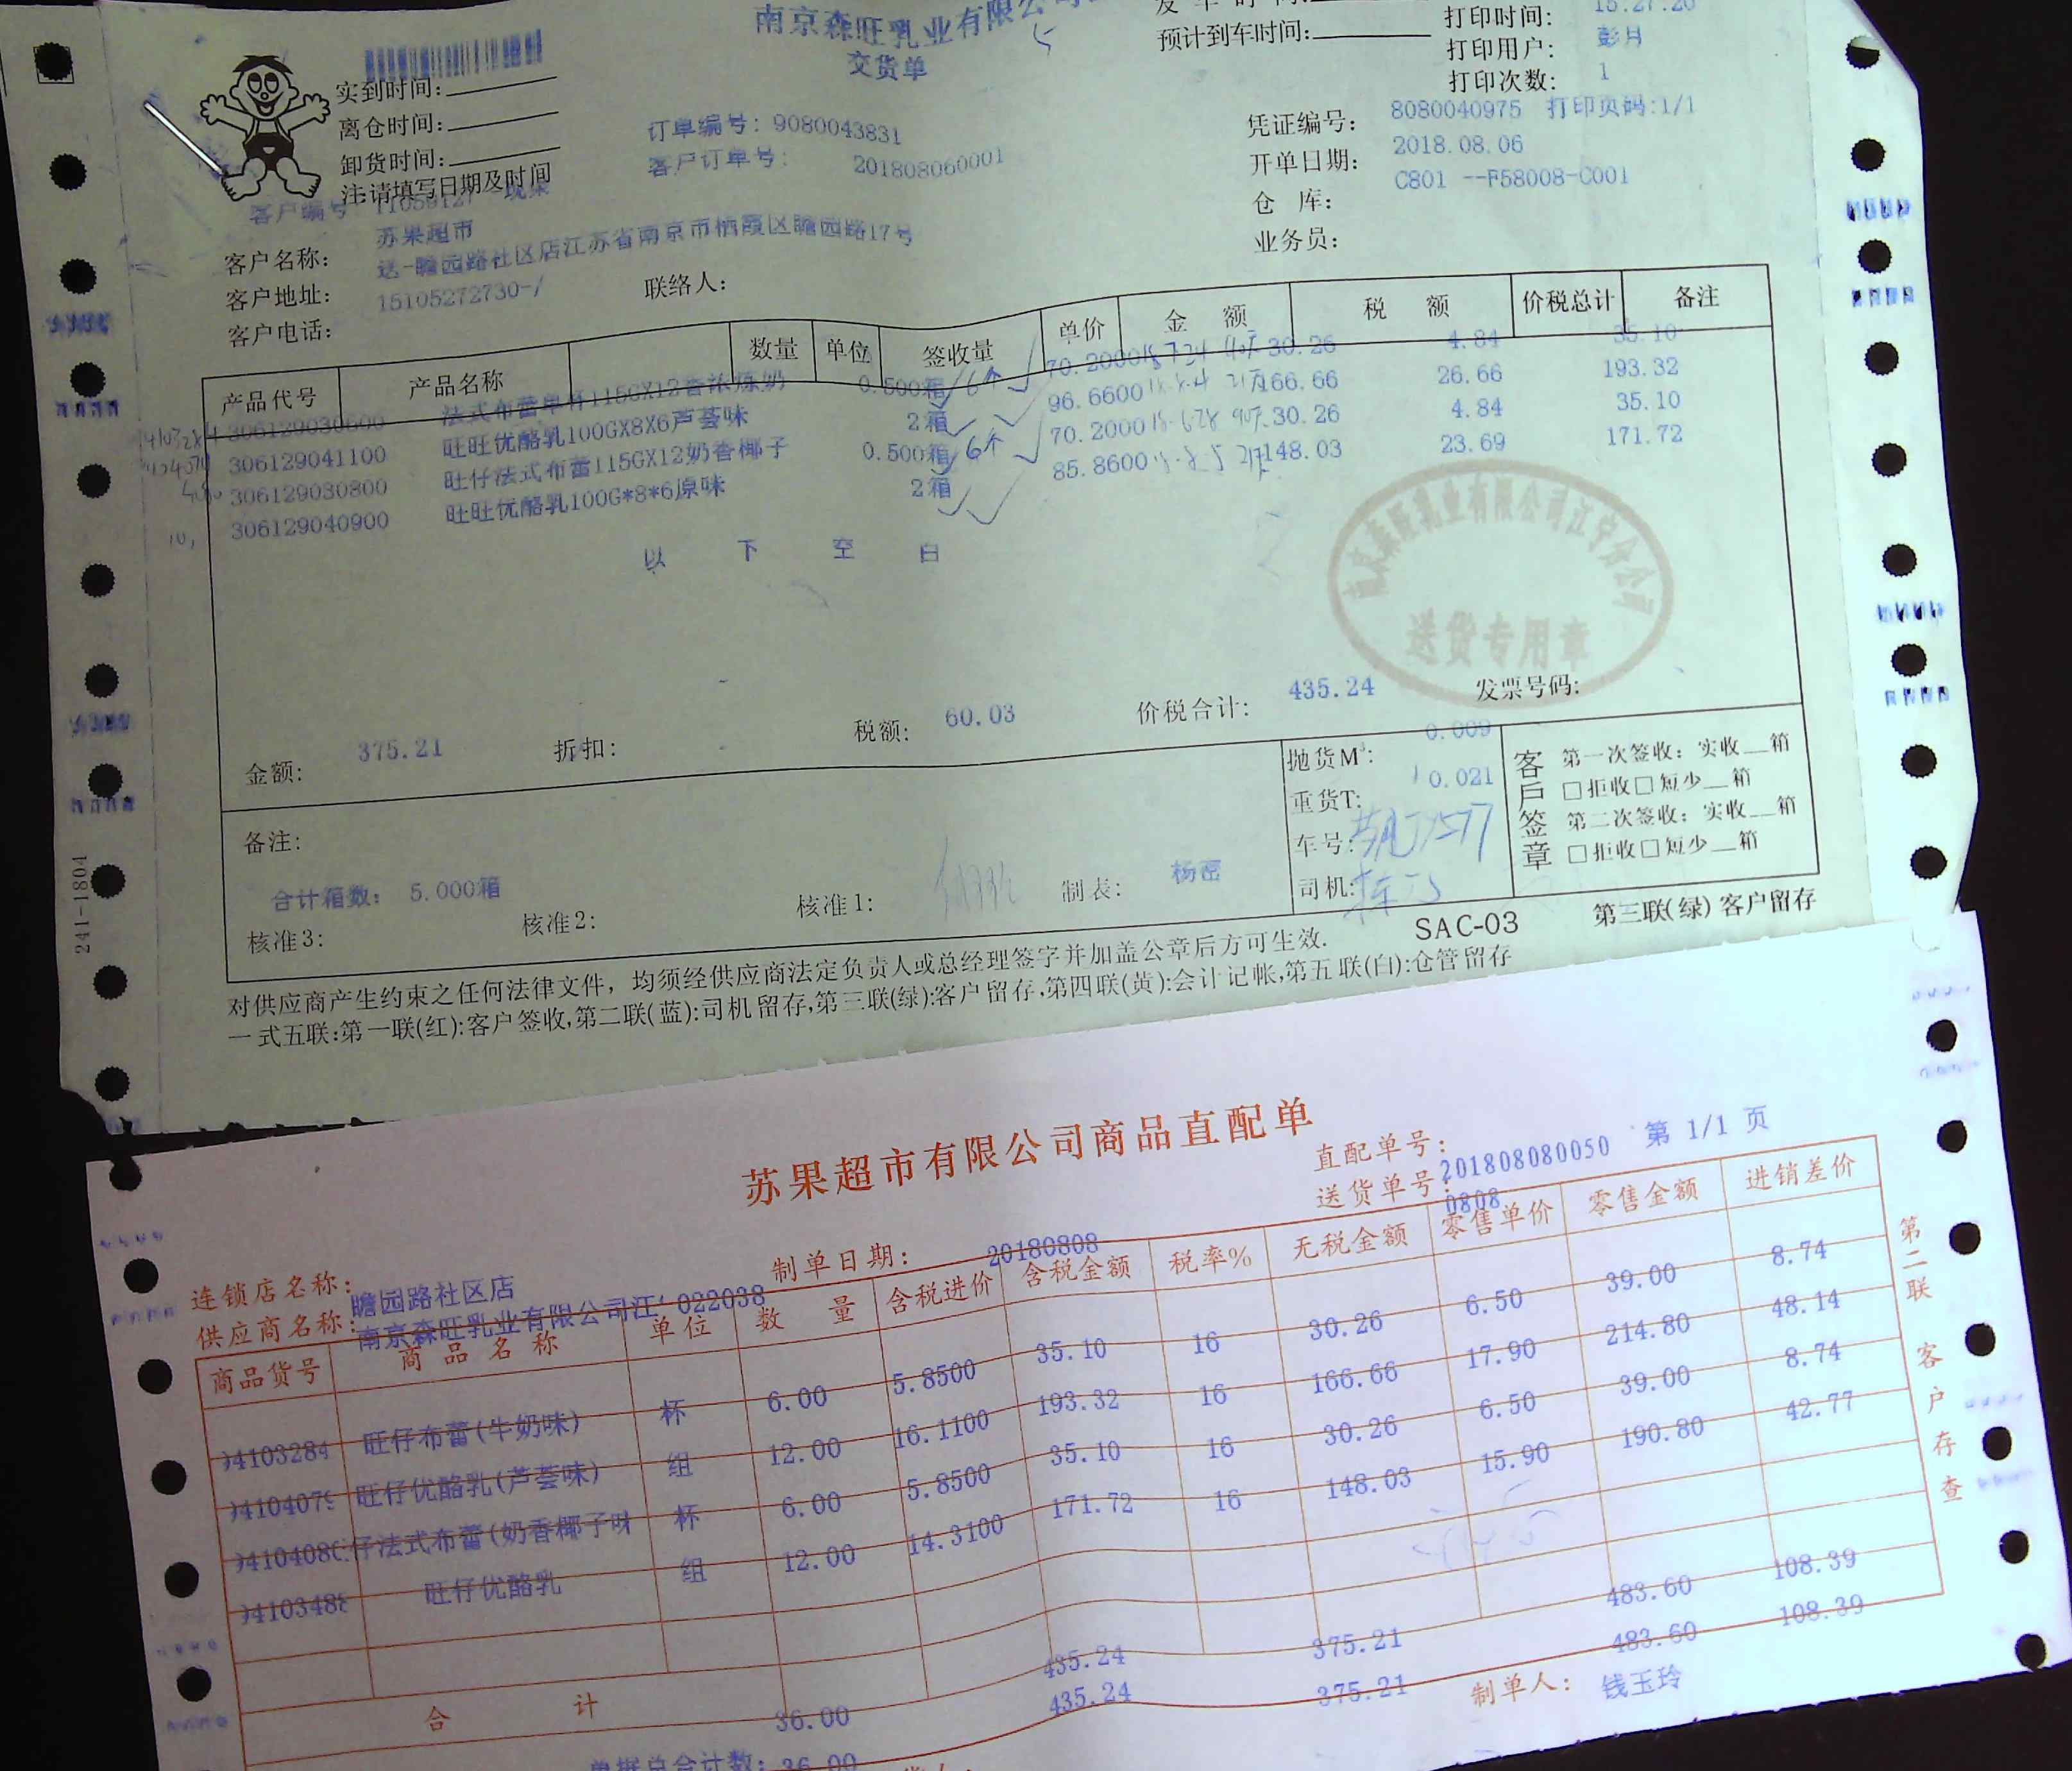 南京森旺乳业有限公司
交货单
预计到车时间:
打印时间: 15:27:20
打印用户: 彭月
打印次数: 1
实到时间:
离仓时间:
卸货时间:
注:请填写日期及时间
订单编号: 9080043831
客户订单号: 201808060001
凭证编号: 8080040975 打印页码:1/1
开单日期: 2018.08.06
仓 库: C801 --F58008-C001
业务员:
客户编号
客户名称: 苏果超市
客户地址: 送-瞻园路社区店江苏省南京市栖霞区瞻园路17号
客户电话: 15105272730-/
联络人:
产品代号 产品名称 数量 单位 签收量 单价 金 额 税 额 价税总计 备注
306129030600 115GX12香浓炼奶 0.500箱 6个 70.2000 30.26 4.84 35.10
306129041100 旺旺优酪乳100GX8X6芦荟味 2箱 96.6600 166.66 26.66 193.32
306129030800 旺仔法式布蕾115GX12奶香椰子 0.500箱 6个 70.2000 30.26 4.84 35.10
306129040900 旺旺优酪乳100G*8*6原味 2箱 85.8600 148.03 23.69 171.72
以 下 空 白
送货专用章
金额: 375.21 折扣: 税额: 60.03 价税合计: 435.24 发票号码:
抛货M³: 0.009
重货T: 0.021
车号:
司机:
客户签章
第一次签收: 实收__箱
□拒收□短少__箱
第二次签收: 实收__箱
□拒收□短少__箱
备注:
合计箱数: 5.000箱
核准3: 核准2: 核准1: 制表: 杨密
SAC-03 第三联(绿) 客户留存
对供应商产生约束之任何法律文件，均须经供应商法定负责人或总经理签字并加盖公章后方可生效.
一式五联:第一联(红):客户签收,第二联(蓝):司机留存,第三联(绿):客户留存,第四联(黄):会计记帐,第五联(白):仓管留存
241-1804
苏果超市有限公司商品直配单
直配单号: 201808080050 第 1/1 页
送货单号: 0808
制单日期: 20180808
连锁店名称: 瞻园路社区店
供应商名称: 南京森旺乳业有限公司江 022038
商品货号 商品名称 单位 数 量 含税进价 含税金额 税率% 无税金额 零售单价 零售金额 进销差价
4103284 旺仔布蕾(牛奶味) 杯 6.00 5.8500 35.10 16 30.26 6.50 39.00 8.74
410407 旺仔优酪乳(芦荟味) 组 12.00 16.1100 193.32 16 166.66 17.90 214.80 48.14
410408 仔法式布蕾(奶香椰子味 杯 6.00 5.8500 35.10 16 30.26 6.50 39.00 8.74
410348 旺仔优酪乳 组 12.00 14.3100 171.72 16 148.03 15.90 190.80 42.77
435.24 375.21 483.60 108.39
合 计 36.00 435.24 375.21 483.60 108.39
制单人: 钱玉玲
单据总合计数: 36.00
第二联 客户存查